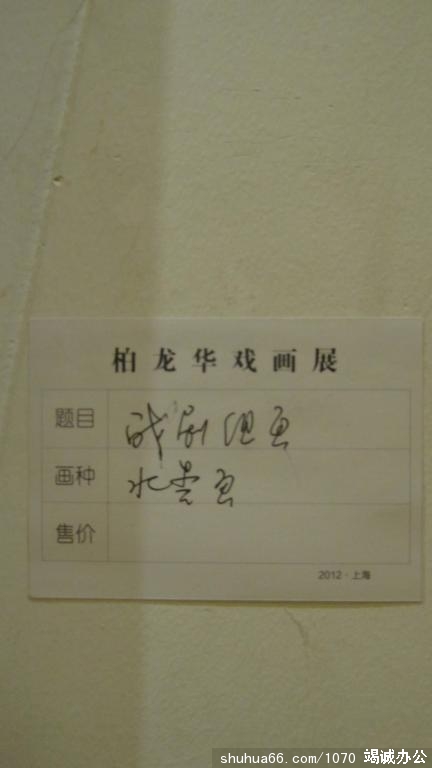 柏龙华戏画展
题目 戏剧组画
画种 水墨画
售价
2012·上海
shuhua66.com/1070 竭诚办公